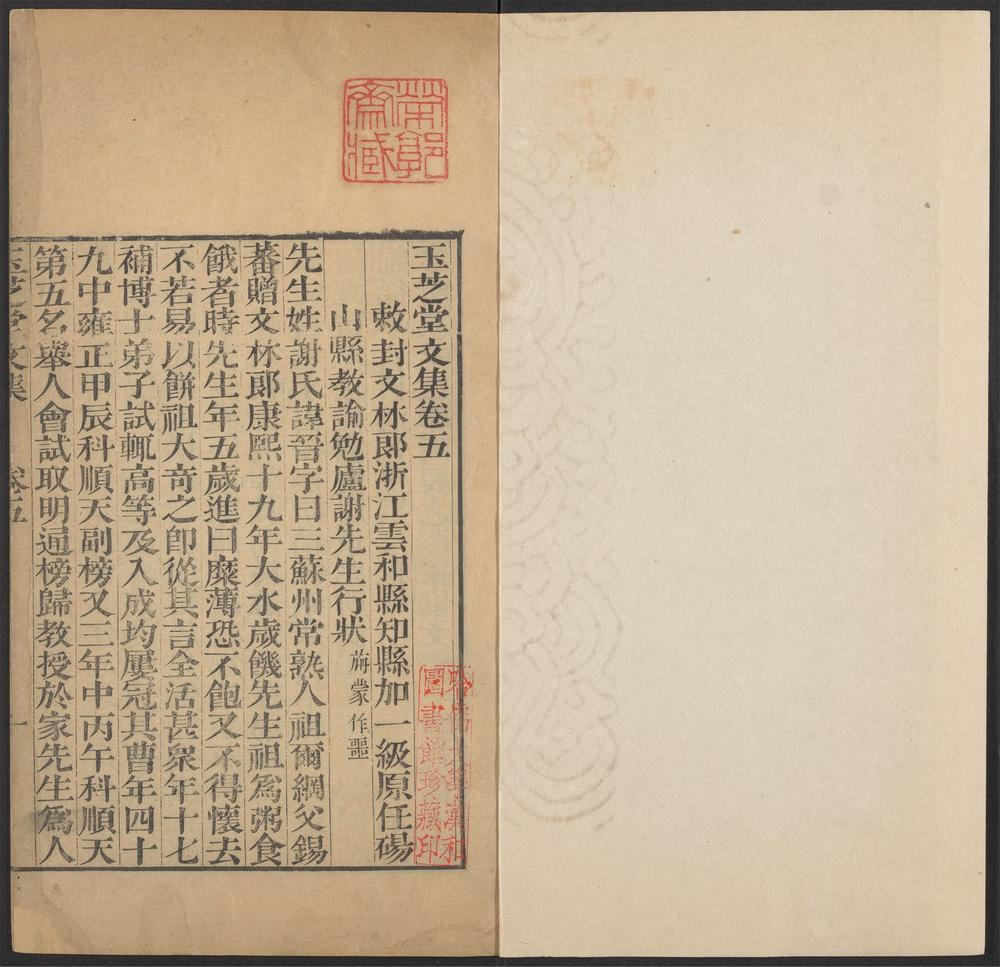 玉芝堂文集卷五
敕封文林郎浙江雲和縣知縣加一級原任碭
山縣教諭勉廬謝先生行狀 旃蒙作噩
先生姓謝氏諱晉字曰三蘇州常熟人祖爾綱父錫
蕃贈文林郎康熙十九年大水歲饑先生祖為粥食
餓者時先生年五歲進曰糜薄恐不飽又不得懷去
不若易以餅祖大奇之卽從其言全活甚衆年十七
補博士弟子試輒高等及入成均屢冠其曹年四十
九中雍正甲辰科順天副榜又三年中丙午科順天
第五名舉人會試取明通榜歸教授於家先生爲人
玉芝堂文集 卷五 一
齋藏
哈佛大學漢和
圖書館珍藏印